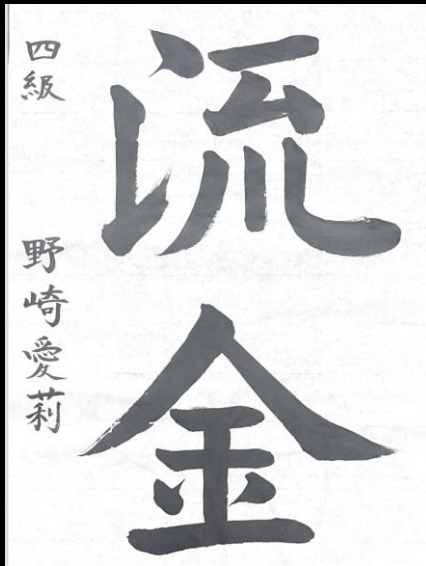 流金
四級 野崎愛莉